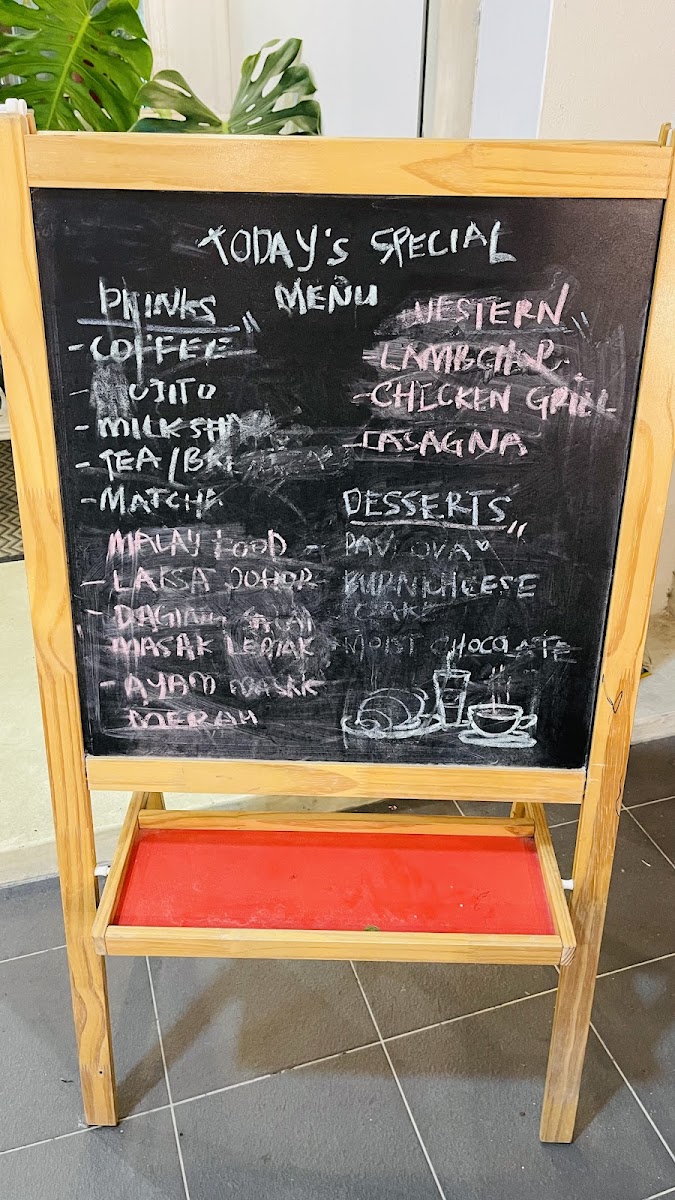 TODAY'S SPECIAL
MENU
DRINKS
- COFFEE
- MOJITO
- MILKSH
- TEA/
- MATCHA
MALAY FOOD
- LAKSA JOHOR
- DAGING
MASAK LEMAK
- AYAM MASAK
MERAH
WESTERN
- LAMBCHOP
- CHICKEN GRILL
- LASAGNA
DESSERTS
- PAVLOVA
BURNTCHEESE
CAKE
- MOIST CHOCOLATE